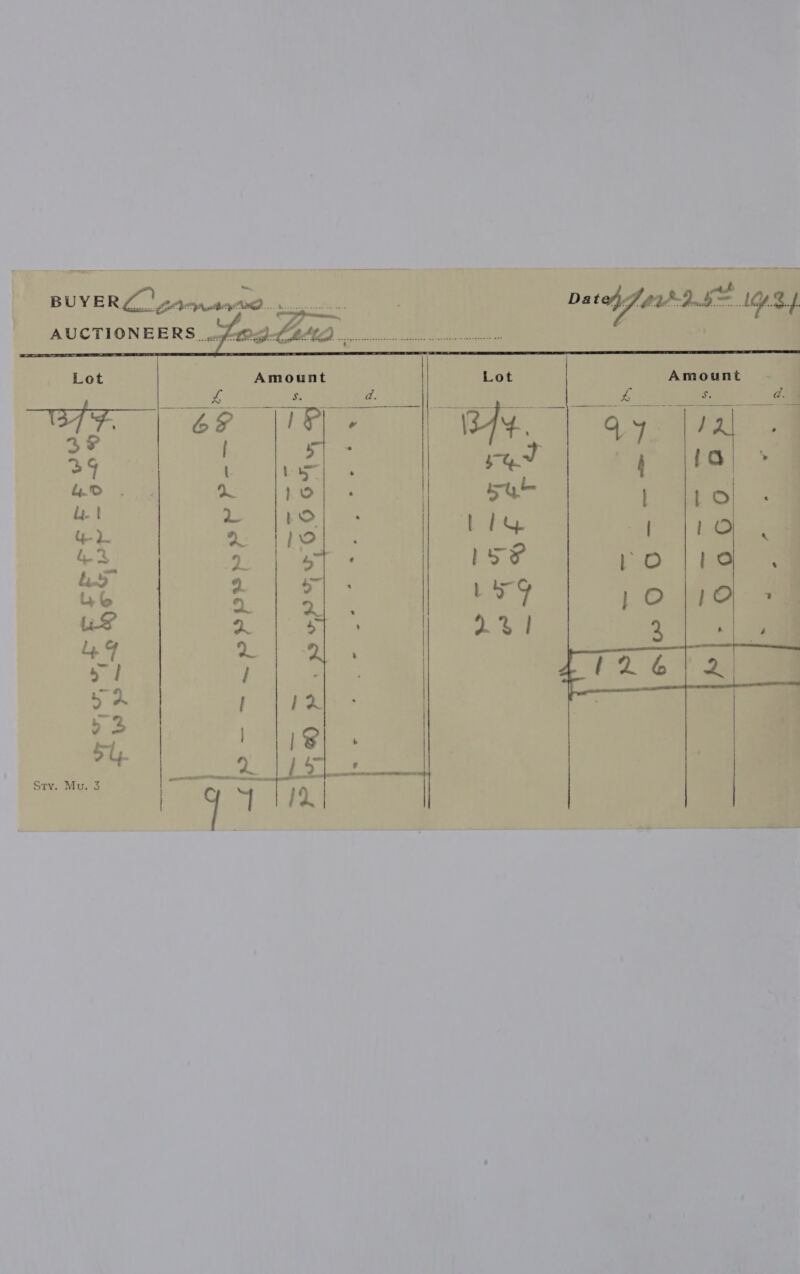 BUYER
Date 25th 1921
AUCTIONEERS
Lot Amount Lot Amount
£ s. d. £ s. d.
B/F. 68 18 B/F. 97 12
38 1 5
39 1 15 1 10
40 2 10 1 10
41 2 10 114 1 10
42 2 10
43 2 5 158 10 10
45 2 5
46 2 2 159 10 10
48 2 5 231 3
49 2 2
51 1 £126 2
52 1 12
53 1 18
54 2 15
Sty. Mu. 3
97 12